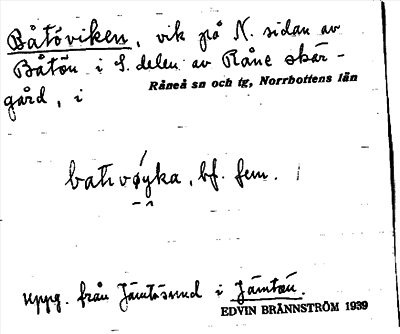 Båtöviken, vik på N. sidan av
Båtön i S. delen av Råne skär-
gård, i Råneå sn och tg, Norrbottens län
batǝvǿyka, bf. fem.
Uppg. från Jämtösund i Jämtön.
EDVIN BRÄNNSTRÖM 1939